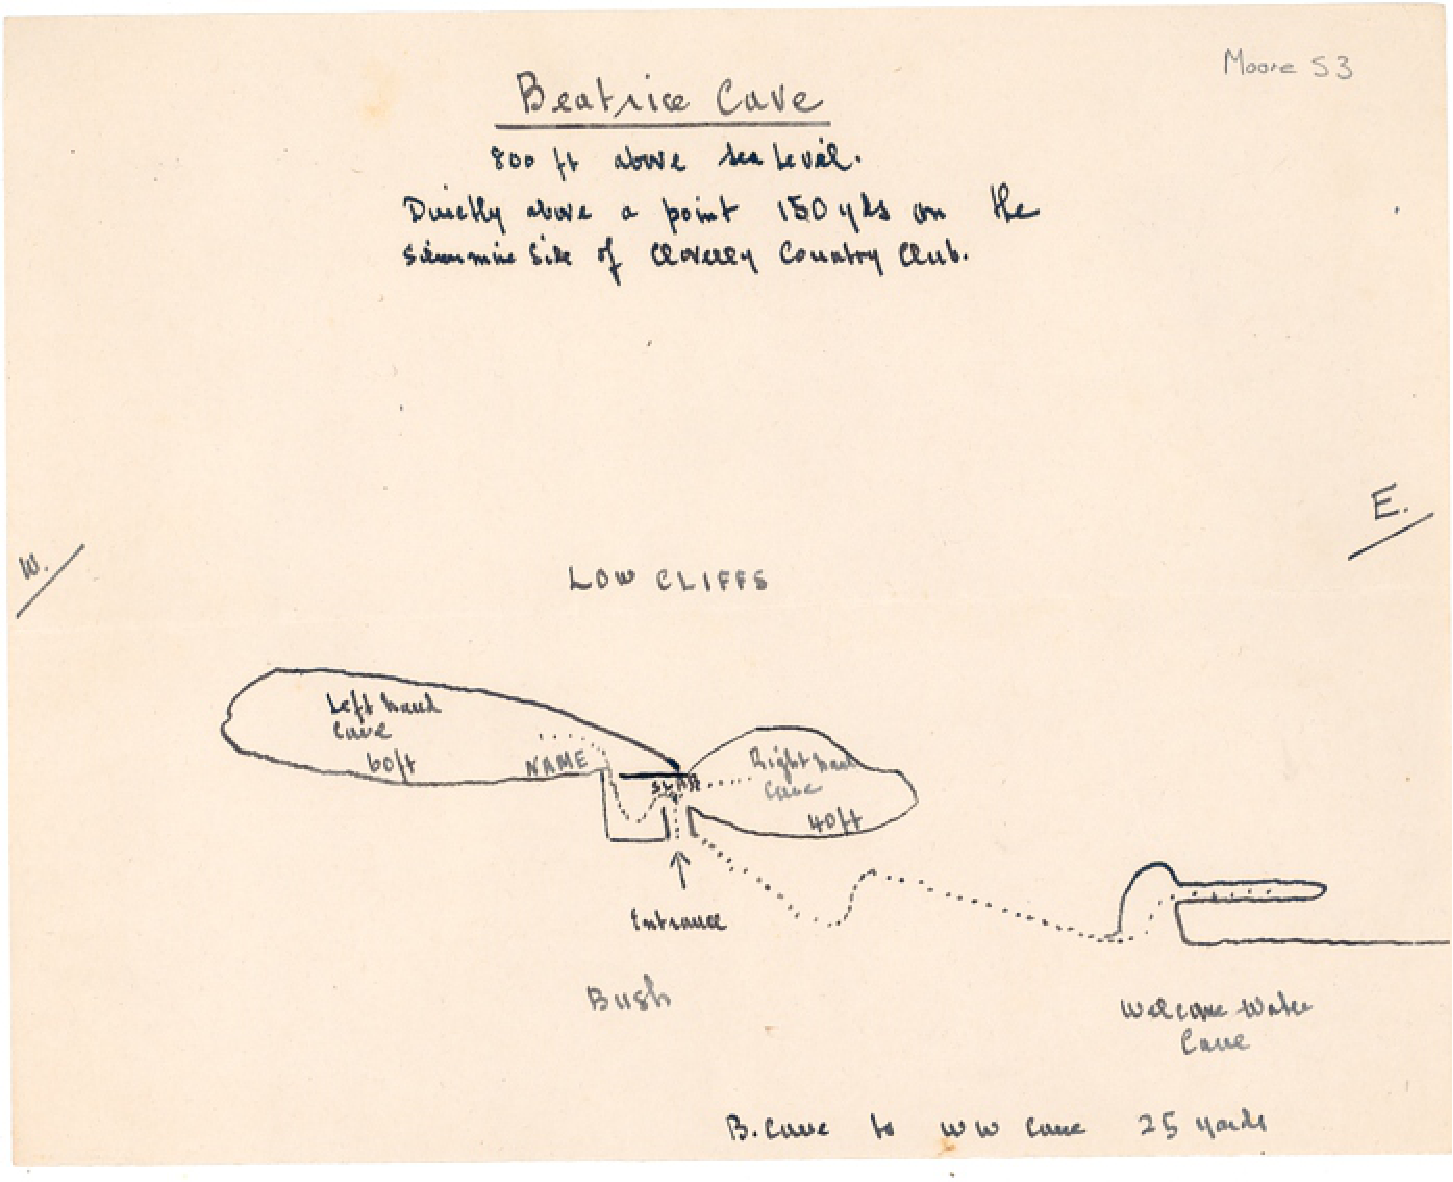 Moore 53
Beatrice Cave
800 ft above sea level.
Directly above a point 150 yds on the
side of Clovelly Country Club.
E.
W.
LOW CLIFFS
Left hand
Cave
60ft
NAME
SLAB
Right hand
Cave
40ft
Entrance
Bush
Welcome Water
Cave
B. Cave to WW Cave 25 yards